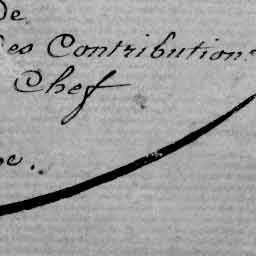 de
des Contributions
Chef